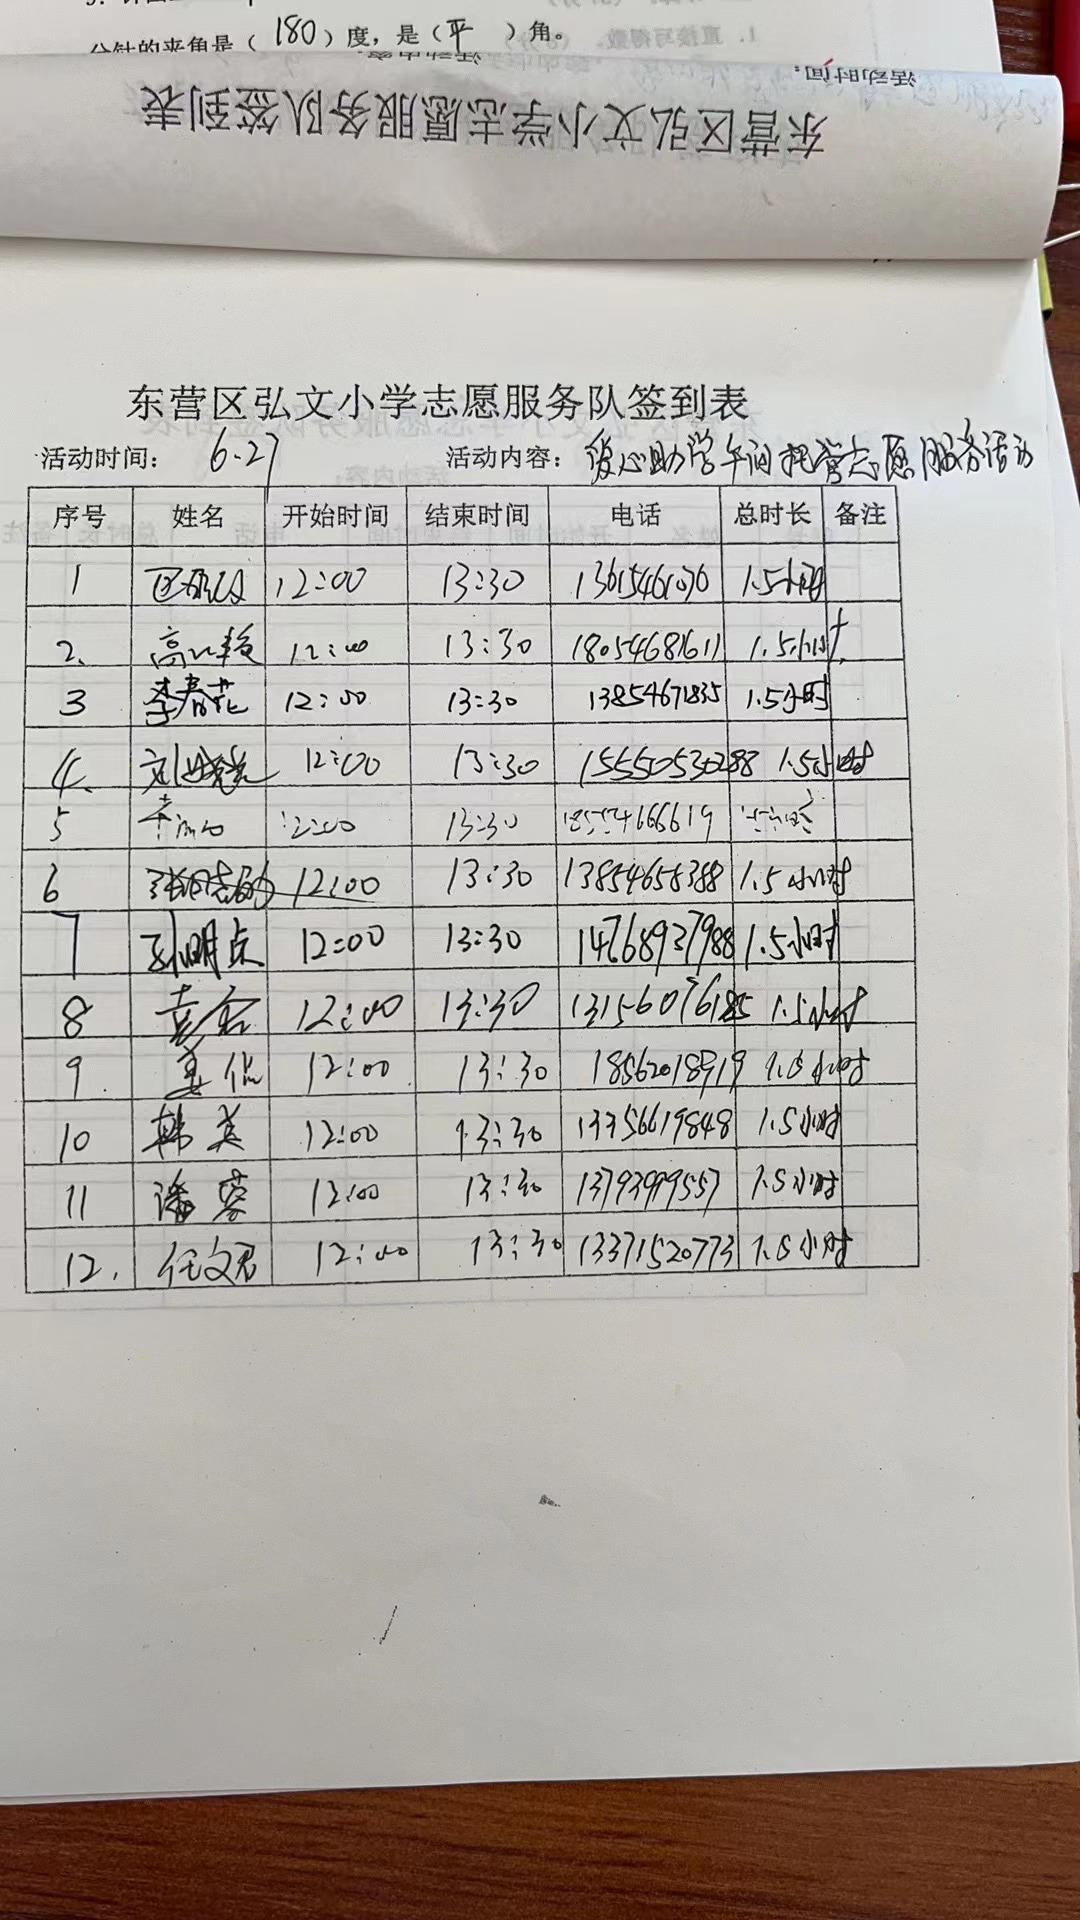 分针的夹角是（ 180 ）度，是（平 ）角。
1．直接写得数。
活动时间：
东营区弘文小学志愿服务队签到表
东营区弘文小学志愿服务队签到表
活动时间： 6.27 活动内容：爱心助学午间托管志愿服务活动
序号 姓名 开始时间 结束时间 电话 总时长 备注
1 12:00 13:30 13615461076 1.5小时
2、 高 12:00 13:30 18054681611 1.5小时
3 李春花 12:00 13:30 13854671835 1.5小时
4、 刘 12:00 13:30 15550530288 1.5小时
5 12:00 13:30
6 张 12:00 13:30 13854658388 1.5小时
7 孙明点 12:00 13:30 14768937988 1.5小时
8 12:00 13:30 1.5小时
9. 12:00 13:30 18562018919 1.5小时
10 韩英 12:00 13:30 13356619848 1.5小时
11 潘蓉 12:00 13:30 1.5小时
12. 任文君 12:00 13:30 13371520773 1.5小时